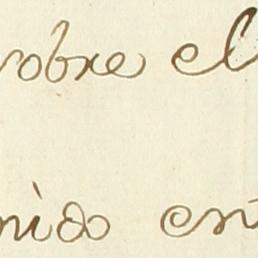 sobre el
nido en